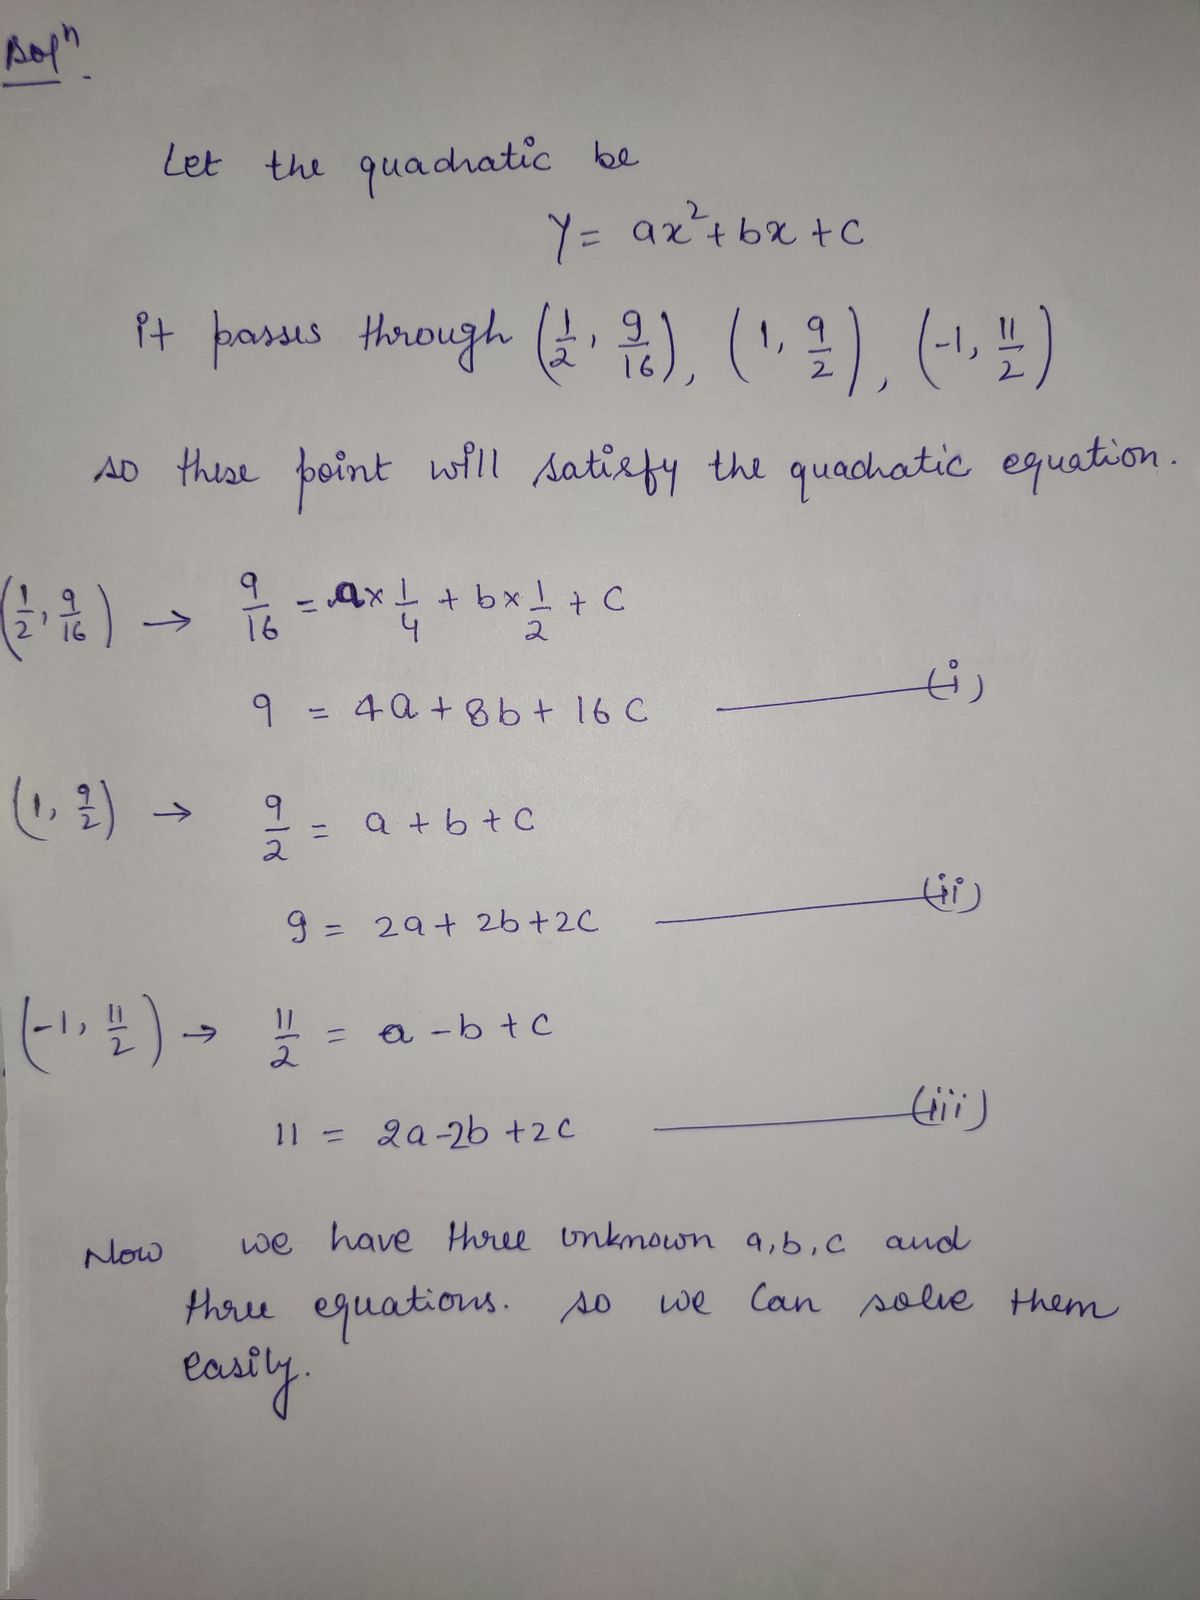 Solⁿ.
Let the quadratic be
Y = ax² + bx + c
it passes through (1/2, 9/16), (1, 9/2), (-1, 11/2)
so these point will satisfy the quadratic equation.
(1/2, 9/16) → 9/16 = a × 1/4 + b × 1/2 + c
9 = 4a + 8b + 16c — (i)
(1, 9/2) → 9/2 = a + b + c
9 = 2a + 2b + 2c — (ii)
(-1, 11/2) → 11/2 = a - b + c
11 = 2a - 2b + 2c — (iii)
Now we have three unknown a, b, c and
three equations. so we can solve them
easily.